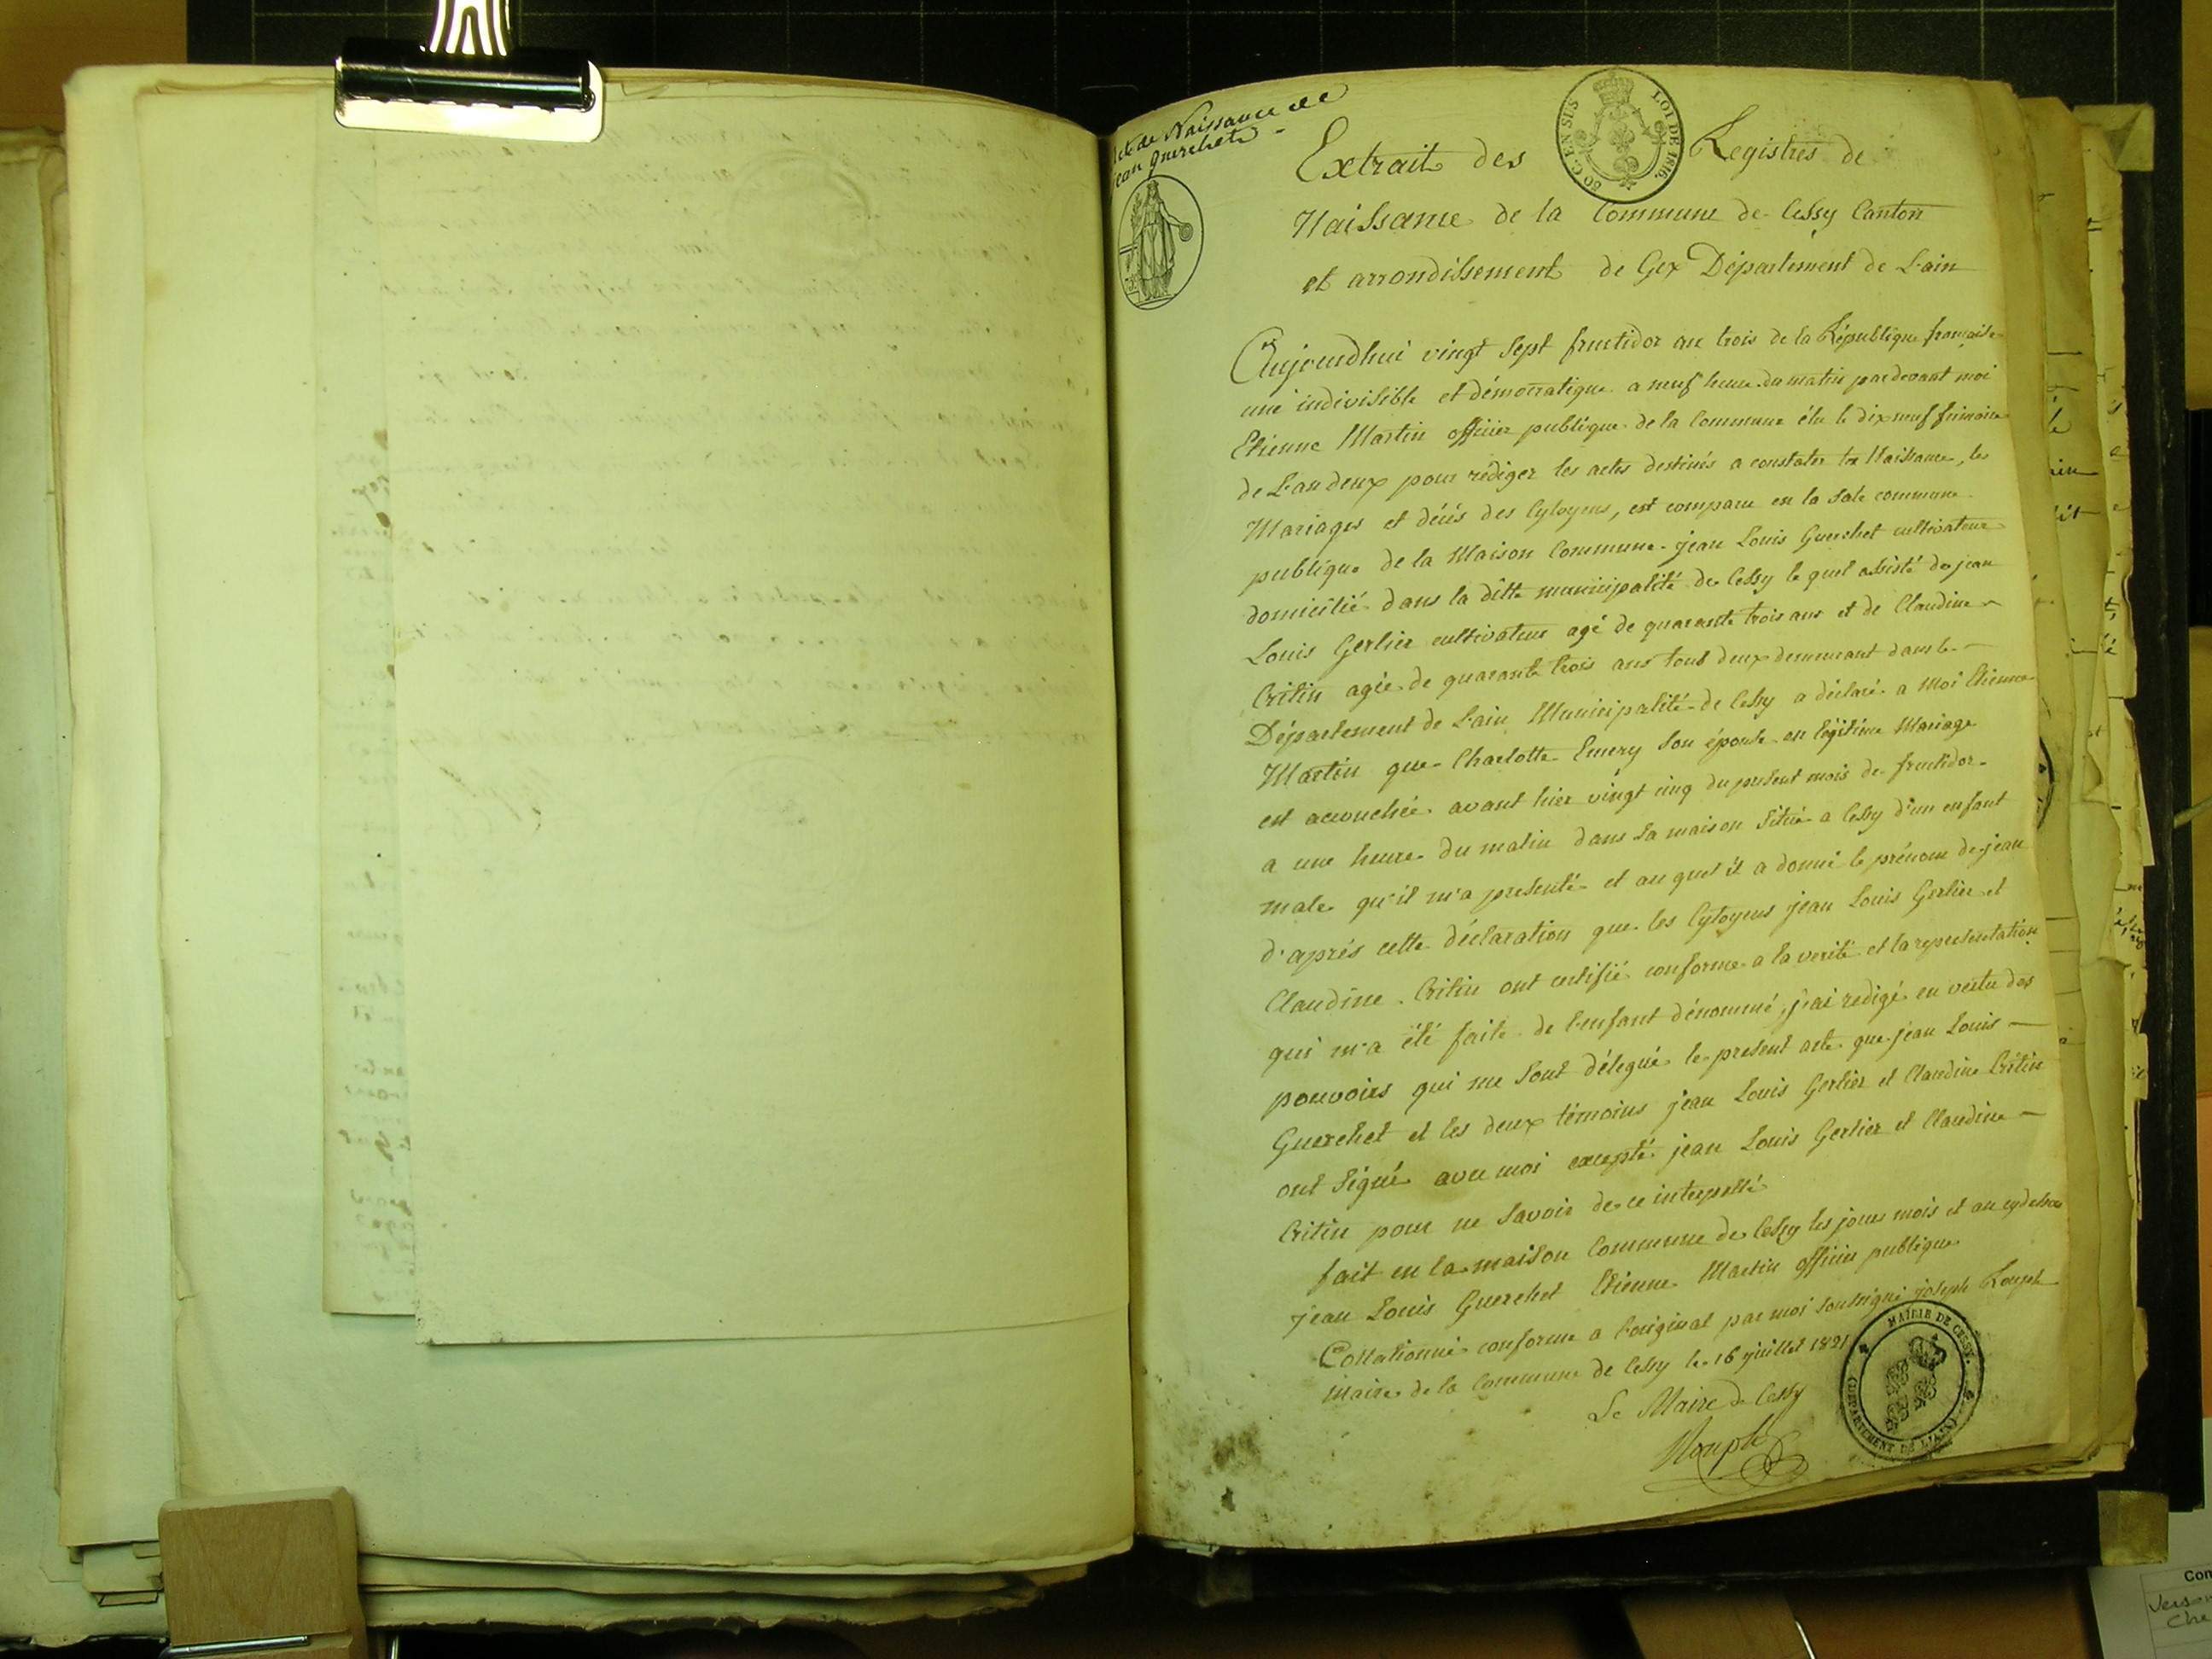 acte de Naissance de
jean guerchet
50 C. EN SUS
LOI DE 1816.
Extrait des Registres de
Naissance de la Commune de Cessy Canton
et arrondissement de Gex Département de L'ain
Aujourdhui vingt Sept fructidor an trois de la République française
une indivisible et démocratique a neuf heure du matin pardevant moi
Etienne Martin officier publique de la Commune élu le dix neuf frimaire
de L'an deux pour rédiger les actes destinés a constater la Naissance, les
Mariages et décés des Cytoyens, est comparu en la Sale commune
publique de la Maison Commune jean Louis Guerchet cultivateur
domicilié dans la ditte municipalité de Cessy le quel assisté de jean
Louis Gerlier cultivateur agé de quarante trois ans et de Claudine
Critin agée de quarante trois ans tous deux demeurant dans le
Département de L'ain Municipalité de Cessy a déclaré a Moi Etienne
Martin que Charlotte Emery Son épouse en légitime Mariage
est accouchée avant hier vingt cinq du présent mois de fructidor
a une heure du matin dans sa maison Située a Cessy d'un enfant
male qu'il m'a presenté et au quel il a donné le prénom de jean
d'aprés cette déclaration que les Cytoyens jean Louis Gerlier et
Claudine Critin ont certifié conforme a la verité et la representation
qui m'a été faite de l'enfant dénommé, j'ai redigé en vertu des
pouvoirs qui me Sont délegué le present acte que jean Louis
Guerchet et les deux témoins jean Louis Gerlier et Claudine Critin
ont Signé avec moi excepté jean Louis Gerlier et Claudine
Critin pour ne Savoir de ce interpellé
fait en la maison Commune de Cessy les jour mois et an cydessus
jean Louis Guerchet Etienne Martin officier publique
Collationné conforme a l'original par moi Soussigné joseph Rouph
maire de la Commune de Cessy le 16 juillet 1821
Le Maire de Cessy
Rouph
MAIRIE DE CESSY.
(DEPARTEMENT DE L'AIN)